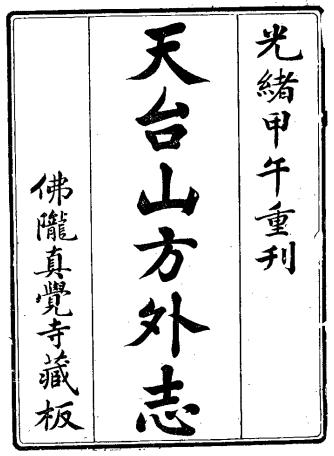 光緒甲午重刊
天台山方外志
佛隴真覺寺藏板